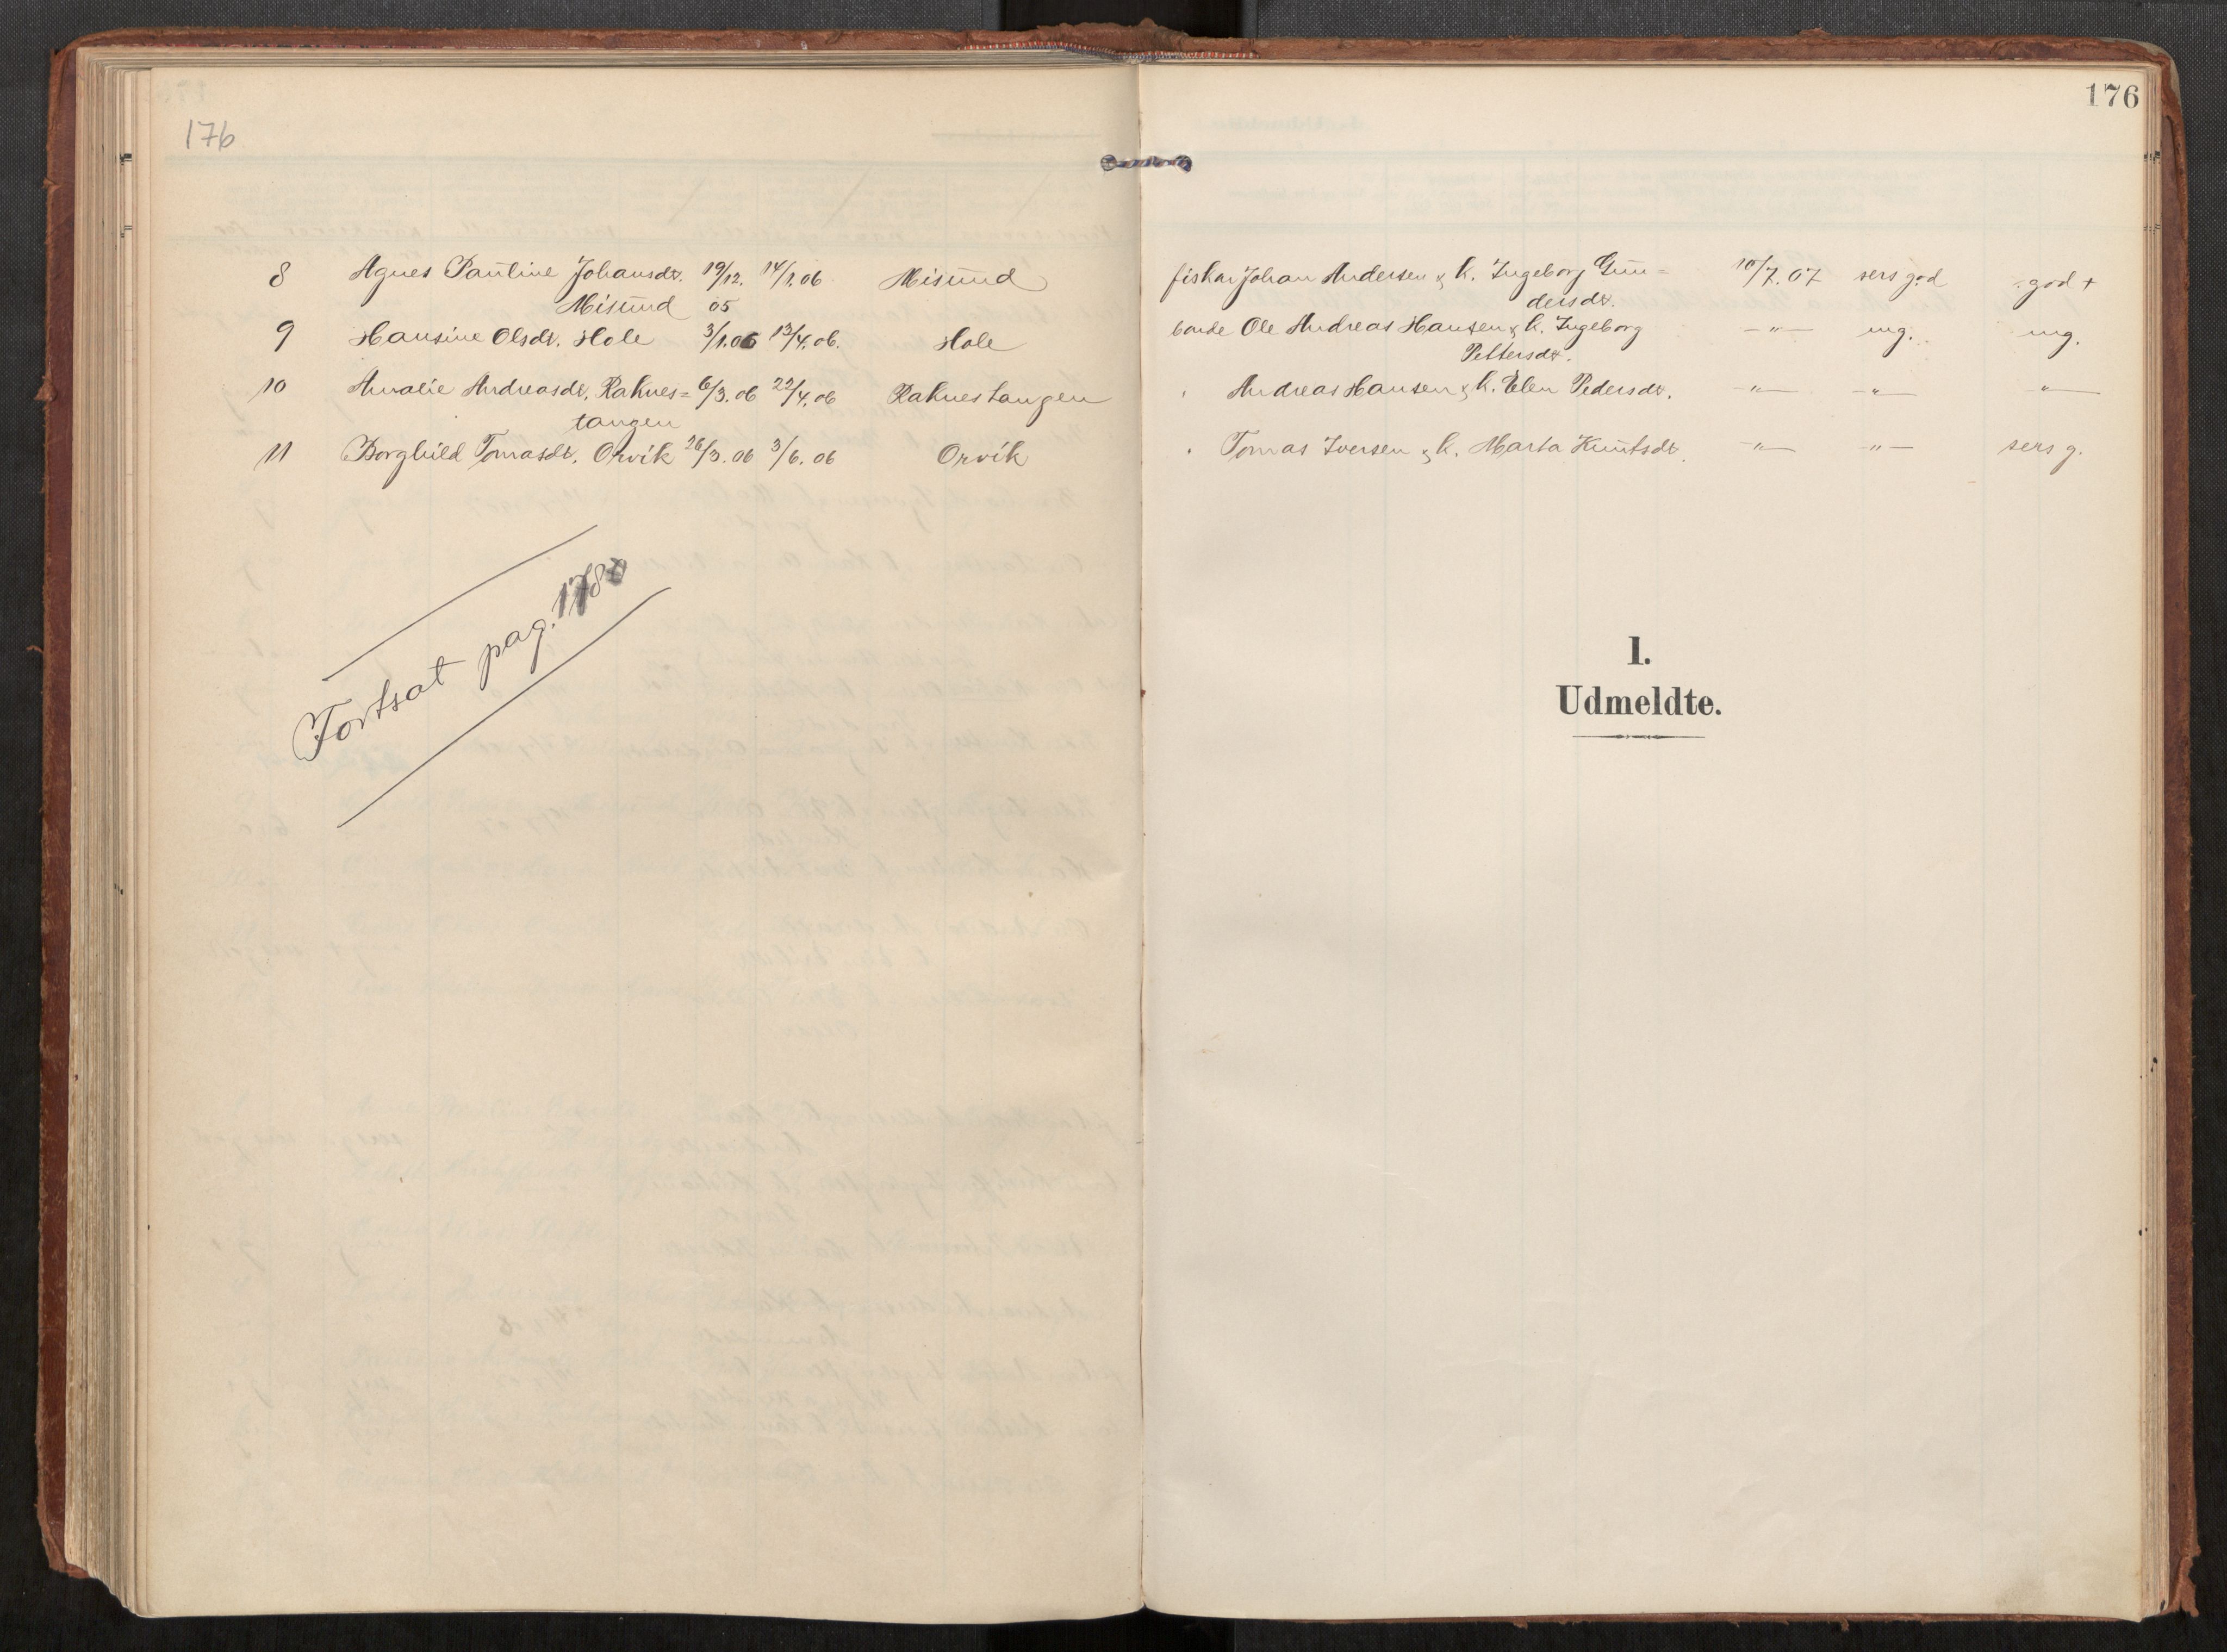 176
176
8 Agnes Pauline Johansdtr. 19/12. 14/1.06 Misund fiskar Johan Andersen & k. Ingeborg Gun= 10/7.07 sers god god +
Misund 05 dersdtr.
9 Hansine Olsdt. Hole 3/1.06 13/4.06. Hole bonde Ole Andreas Hansen & k. Ingeborg –„– mg. mg.
Pettersdtr.
10 Amalie Andreasdt. Raknes= 6/3.06 22/4.06 Raknestangen Andreas Hansen & k. Elen Pedersdtr. –„– –„– „
tangen
11 Borghild Tomasdt. Orvik 26/3.06 3/6.06 Orvik Tomas Iversen & k. Marta Knutsdtr. –„– –„– sers g.
Fortsat pag.
1.
Udmeldte.